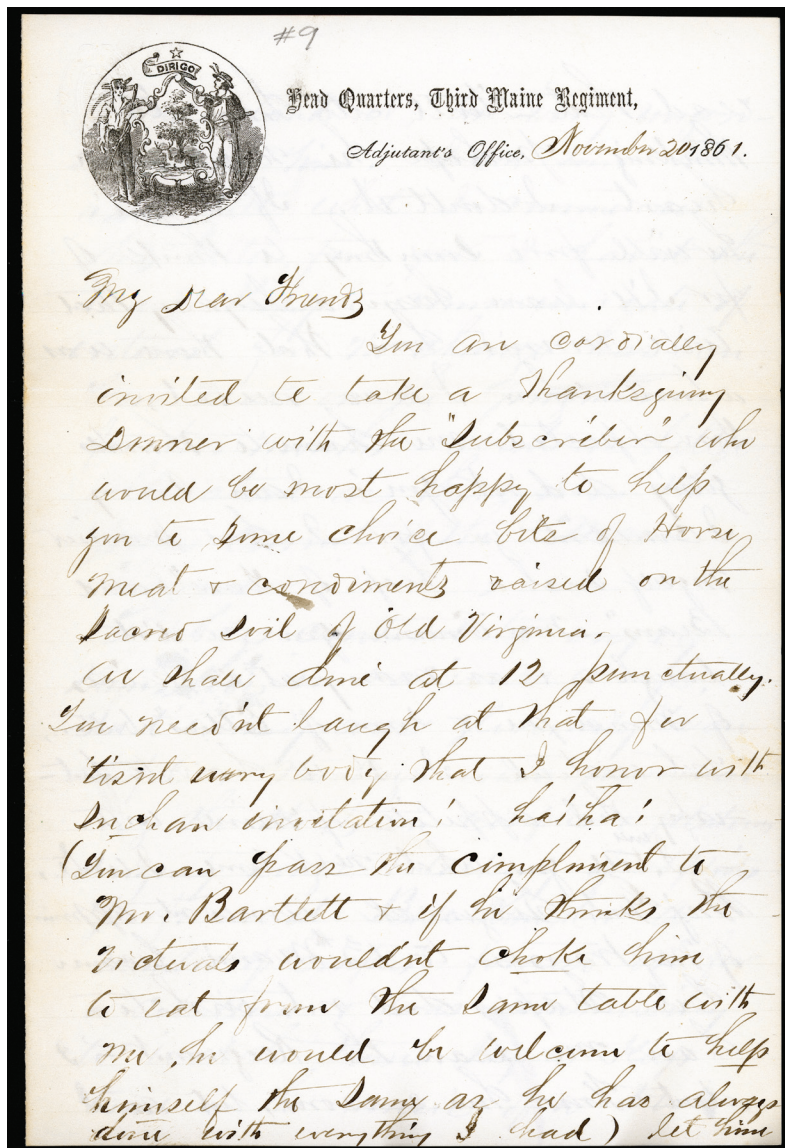 #9
DIRIGO
Head Quarters, Third Maine Regiment,
Adjutant's Office, November 20 1861.
My Dear Friends
You are cordially
invited to take a Thanksgiving
Dinner with the "Subscriber" who
would be most happy to help
you to some choice bits of Horse
meat & condiments raised on the
Sacred Soil of Old Virginia.
We shall dine at 12 punctually.
You needn't laugh at that for
'tisnt every body that I honor with
such an invitation! ha! ha!
(You can pass the compliment to
Mr. Bartlett & if he thinks the
victuals wouldnt choke him
to eat from the same table with
me, he would be welcome to help
himself the same as he has always
done with everything I had) let him